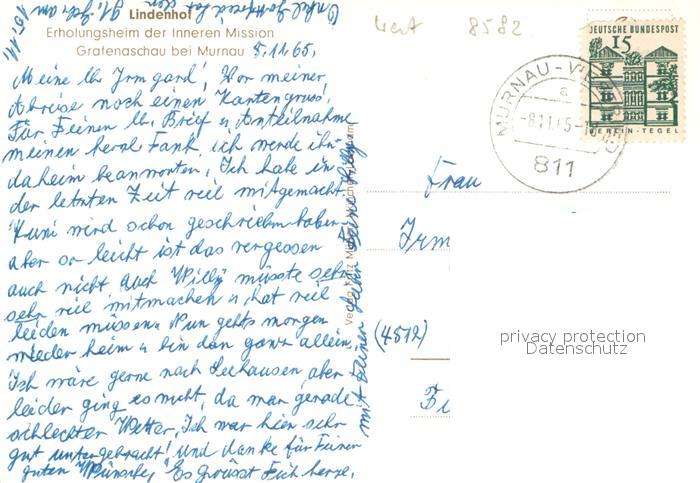 Lindenhof
Erholungsheim der Inneren Mission
Grafenaschau bei Murnau
8.11.65.
Meine lb. Irmgard! Vor meiner
Abreise noch einen Kartengruss!
Für Deinen lb. Brief u. Anteilnahme
meinen herzl. Dank, ich werde ihn
daheim beantworten. Ich habe in
der letzten Zeit viel mitgemacht
Kuni wird schon geschrieben haben,
aber so leicht ist das vergessen
auch nicht auch Willy müsste sehr
sehr viel mitmachen u. hat viel
leiden müssen. Nun gehts morgen
wieder heim u. bin dan ganz allein.
Ich wäre gerne nach Seehausen, aber
leider ging es nicht, da war gerade
schlechter Wetter. Ich war hier sehr
gut untergebracht! und danke für Deinen
guten Wünsche. Es grüsst Dich herzl.
mit Deiner
Deine
Wert 8582
DEUTSCHE BUNDESPOST
15
BERLIN-TEGEL
MURNAU
a
-8.11.65-
811
Frau
Irm
(4512)
privacy protection
Datenschutz